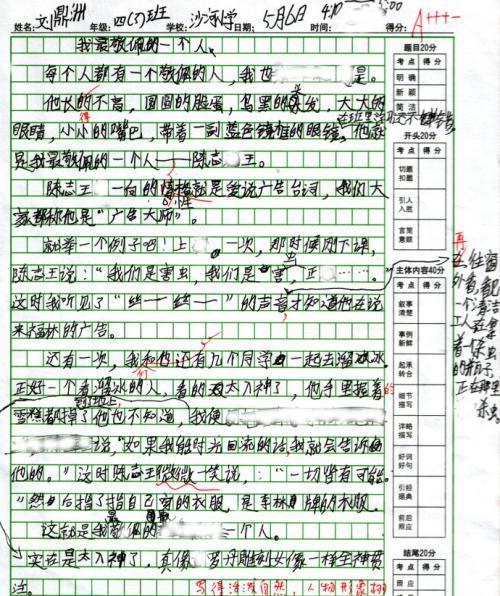 姓名: 刘鼎洲 年级: 四(3)班 学校: 沙河小学 日期: 5月6日 时间: 4:10 5:00 得分: A+++-
我最敬佩的一个人
每个人都有一个敬佩的人,我也 是。
他长的不高,圆圆的脸蛋,乌黑的头发,大大的
得
眼睛,小小的嘴巴,带着一副蓝色镜框的眼镜,他就
是我最敬佩的一个人——陈志 王。
陈志王 一向的 就是爱说广告台词,我们大
家都称他是“广告大师”。
就举一个例子吧!上 一次,那时候刚下课,
陈志王说:“我们是害虫,我们是害虫 正 ……。”
这时我听见了“ ”的声音才知道他在说
来福林的广告。
还有一次,我和 还有几个同学 一起去溜冰。
正好一个看溜冰的人,看的 太入神了,他手里握着的
到地上
雪糕都掉了他也不知道,我便
说“如果我能时光回流的话我就会告诉
他的。”这时陈志王微微一笑说,:“一切皆有可能。
”然后指了指自己穿的衣服,是李林牌的衣服。
这就是我 敬佩的 一个人。
实在是太入神了,真像 罗丹雕刻女像一样全神贯
注。
写得活泼自然,人物形象
在 往窗
外看,看见
一个清洁
工人 拿
着
的瓶子,
正在那里
杀虫
题目20分
考点 得分
明确
新颖
简洁
开头20分
考点 得分
切题
扣题
引人
入胜
言简
意赅
主体内容40分
考点 得分
叙事
清楚
事例
新鲜
起承
转合
细节
描写
详略
描写
好词
好句
引经
据典
前后
照应
结尾20分
考点 得分
照应